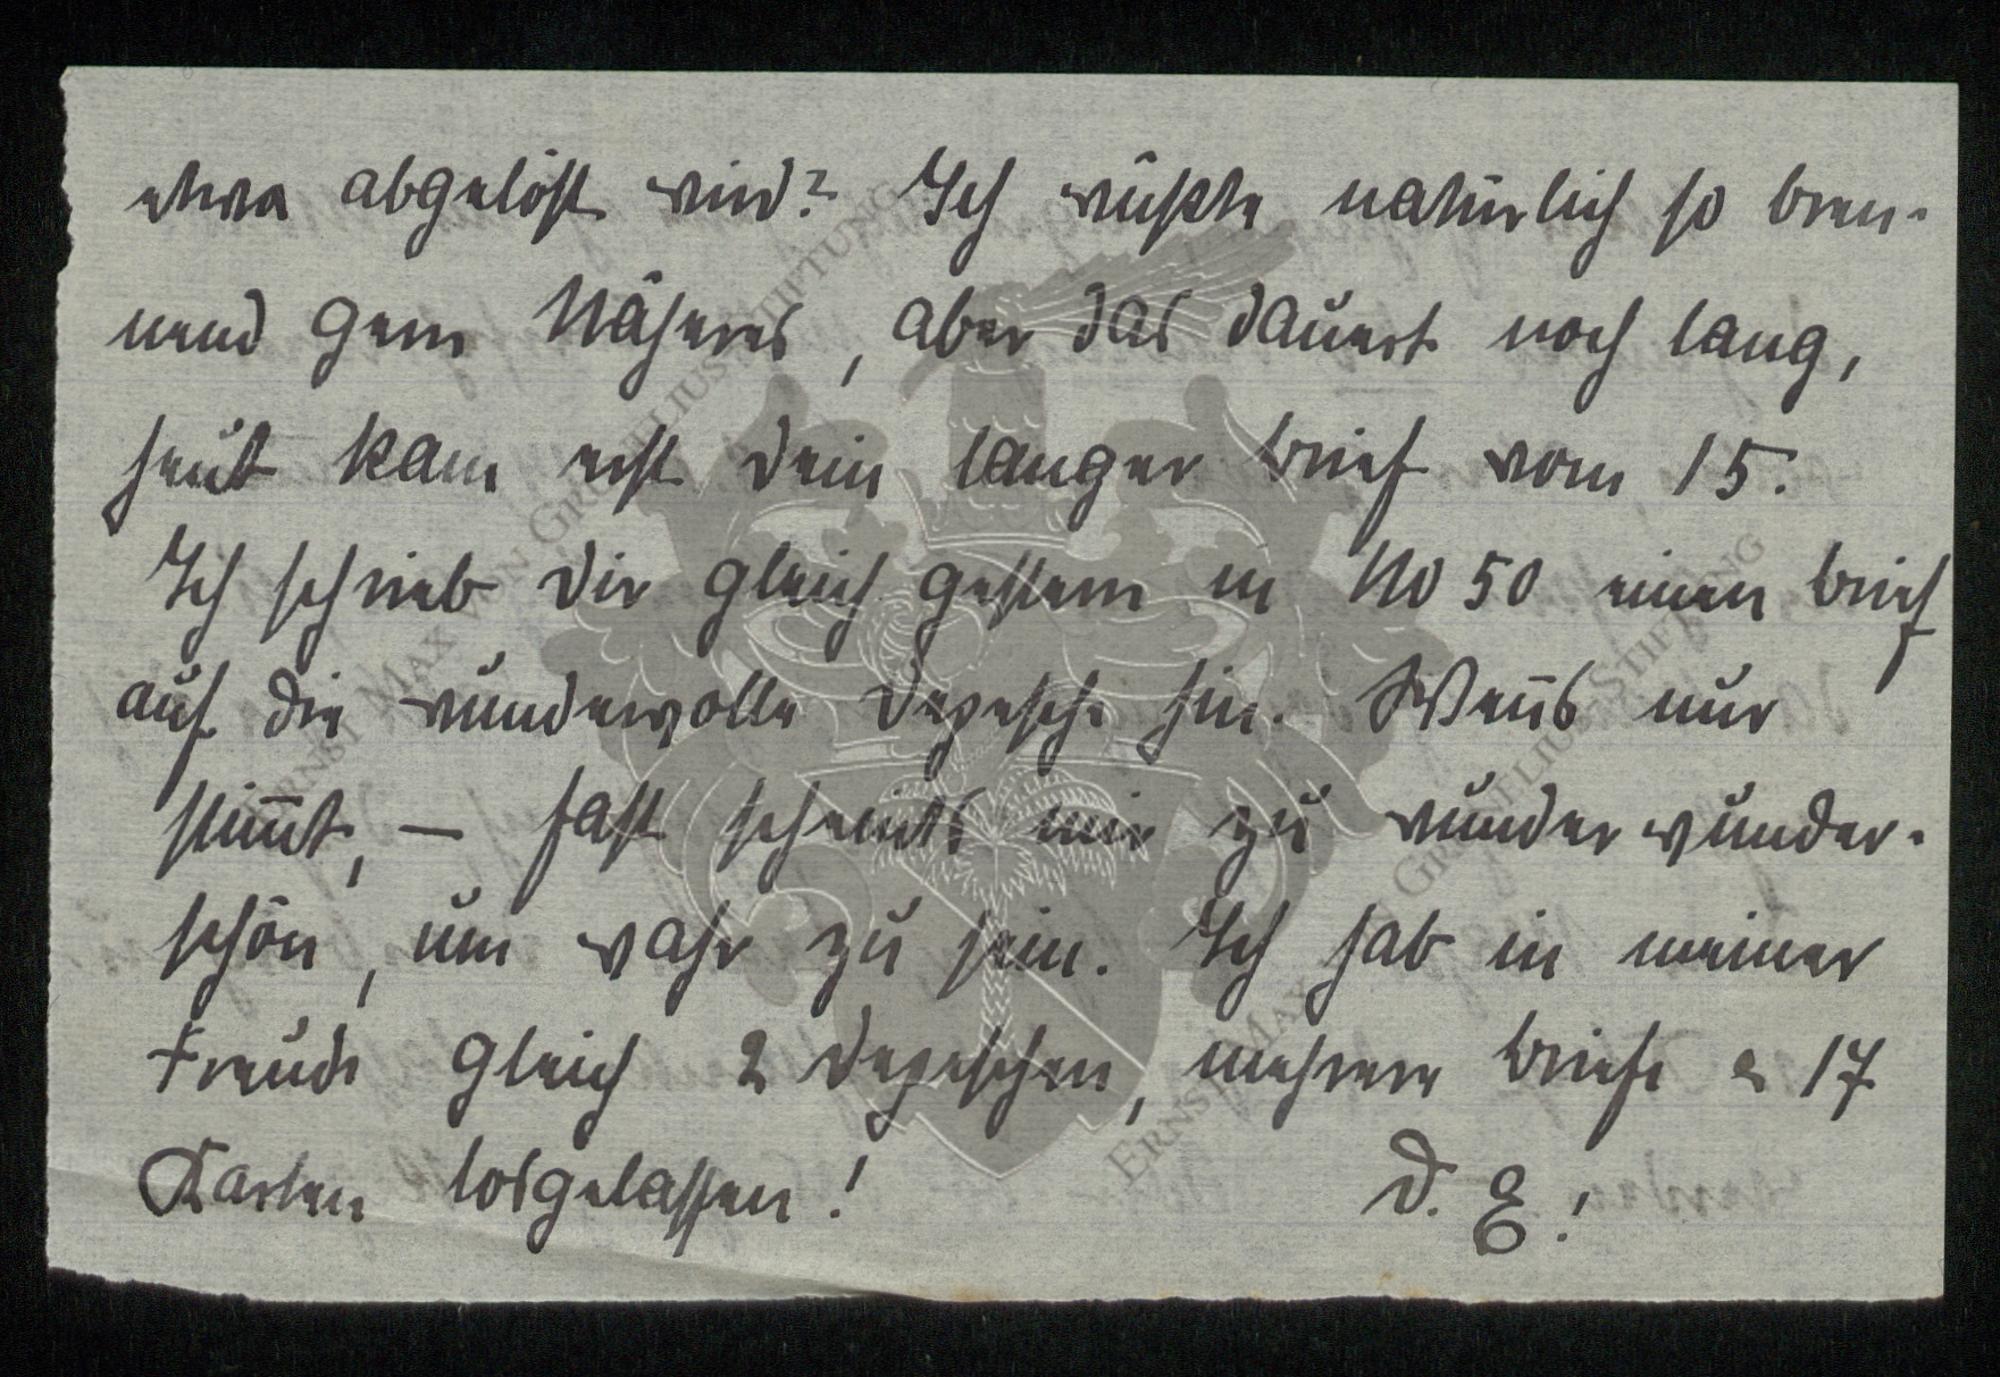 etwa abgelöst wird? Ich wüßte natürlich so bren-
nend gern Näheres, aber das dauert noch lang,
heut kam erst Dein langer Brief vom 15.
Ich schrieb Dir gleich gestern in No 50 einen Brief
auf die wundervolle Depesche hin. Wen̄s nur
stim̄t, — fast scheints mir zu wunder wunder-
schön, um wahr zu sein. Ich hab in meiner
Freude gleich 2 Depeschen, mehrere Briefe & 17
Karten losgelassen! D. E.!
ERNST MAX VON GRUNELIUS STIFTUNG
ERNST MAX VON GRUNELIUS STIFTUNG